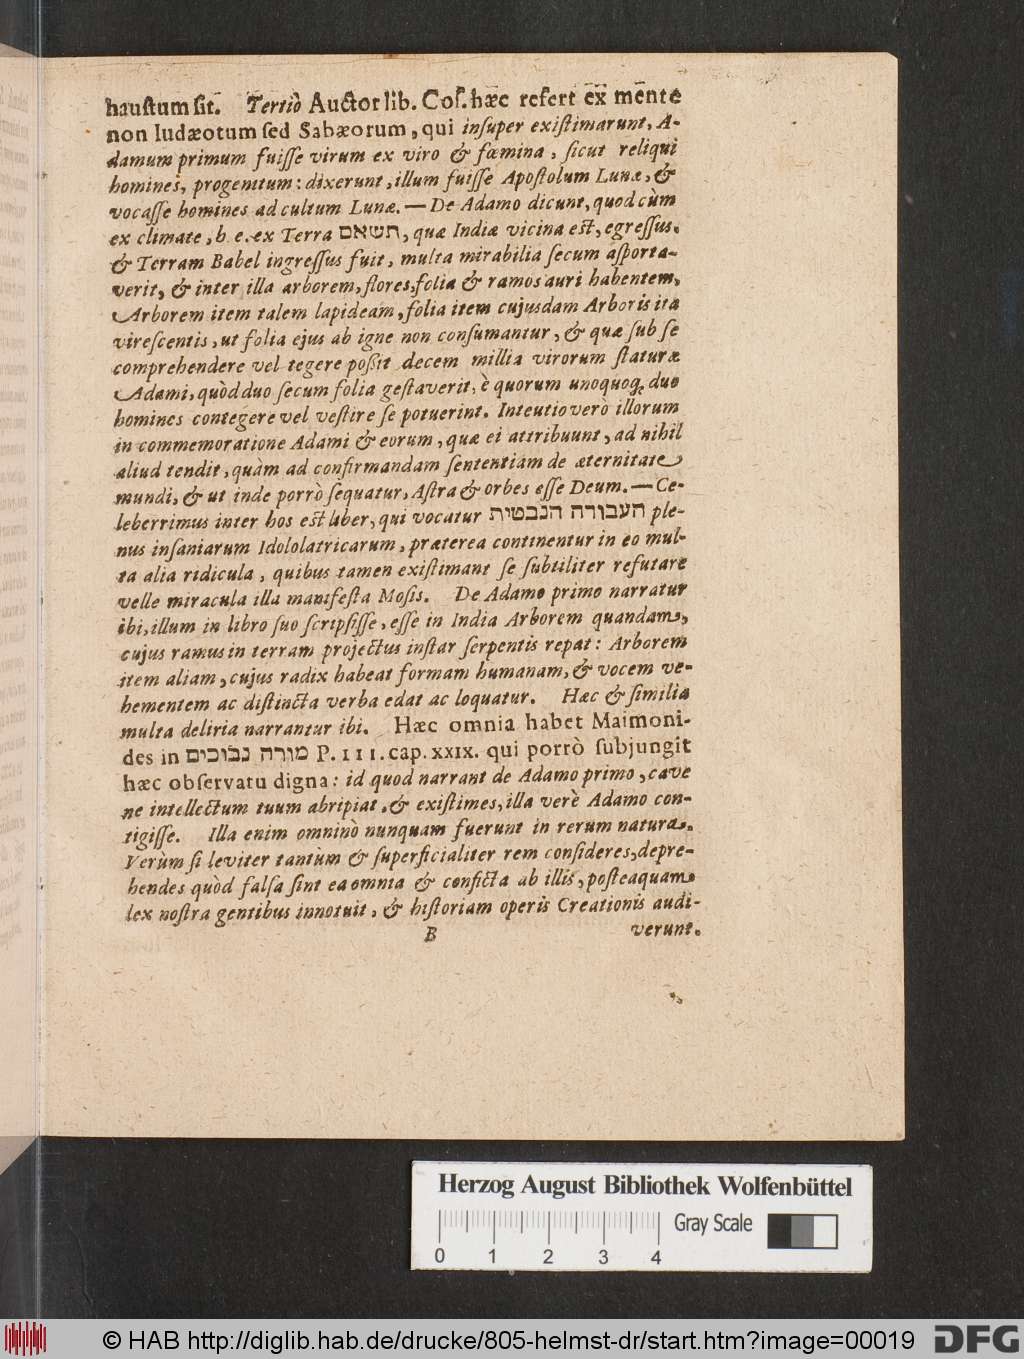 haustum sit. Tertiò Auctor lib. Cos. hæc refert ex mente
non Iudæotum sed Sabæorum, qui insuper existimarunt, A-
damum primum fuisse virum ex viro & fœmina, sicut reliqui
homines, progenitum: dixerunt, illum fuisse Apostolum Lunæ, &
vocasse homines ad cultum Lunæ. — De Adamo dicunt, quod cùm
ex climate, h. e. ex Terra תשאם, quæ Indiæ vicina est, egressus,
& Terram Babel ingressus fuit, multa mirabilia secum asporta-
verit, & inter illa arborem, flores, folia & ramos auri habentem,
Arborem item talem lapideam, folia item cujusdam Arboris ita
virescentis, ut folia ejus ab igne non consumantur, & quæ sub se
comprehendere vel tegere possit decem millia virorum staturæ
Adami, quòd duo secum folia gestaverit, è quorum unoquoq; duo
homines contegere vel vestire se potuerint. Intentio verò illorum
in commemoratione Adami & eorum, quæ ei attribuunt, ad nihil
aliud tendit, quàm ad confirmandam sententiam de æternitate
mundi, & ut inde porrò sequatur, Astra & orbes esse Deum. — Ce-
leberrimus inter hos est liber, qui vocatur העבורה הנבטית ple-
nus insaniarum Idololatricarum, præterea continentur in eo mul-
ta alia ridicula, quibus tamen existimant se subtiliter refutare
velle miracula illa manifesta Mosis. De Adamo primo narratur
ibi, illum in libro suo scripsisse, esse in India Arborem quandam,
cujus ramus in terram projectus instar serpentis repat: Arborem
item aliam, cujus radix habeat formam humanam, & vocem ve-
hementem ac distincta verba edat ac loquatur. Hæc & similia
multa deliria narrantur ibi. Hæc omnia habet Maimoni-
des in מורה נבוכים P. III. cap. XXIX. qui porrò subjungit
hæc observatu digna: id quod narrant de Adamo primo, cave
ne intellectum tuum abripiat, & existimes, illa verè Adamo con-
tigisse. Illa enim omninò nunquam fuerunt in rerum natura.
Verùm si leviter tantùm & superficialiter rem consideres, depre-
hendes quòd falsa sint ea omnia & conficta ab illis, posteaquam
lex nostra gentibus innotuit, & historiam operis Creationis audi-
B verunt.
Herzog August Bibliothek Wolfenbüttel
Gray Scale
0 1 2 3 4
© HAB http://diglib.hab.de/drucke/805-helmst-dr/start.htm?image=00019
DFG